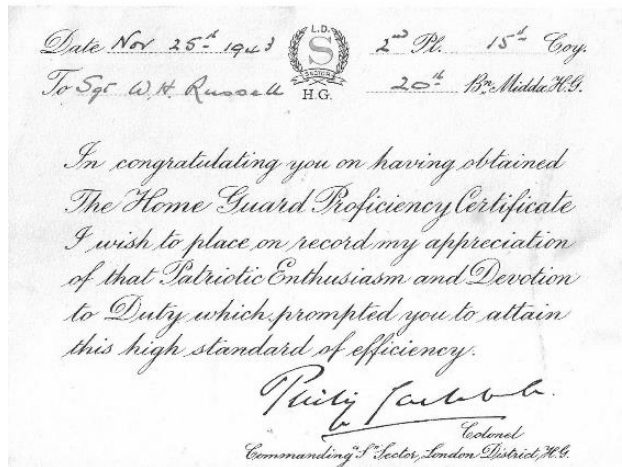 Date Nov 25th 1943
L.D.
S
SECTOR
H.G.
2nd Pl. 15th Coy.
To Sgt W.H. Russell
20th Bn. Middx H.G.
In congratulating you on having obtained
The Home Guard Proficiency Certificate
I wish to place on record my appreciation
of that Patriotic Enthusiasm and Devotion
to Duty which prompted you to attain
this high standard of efficiency.
Philip
Colonel
Commanding "S" Sector, London District, H.G.